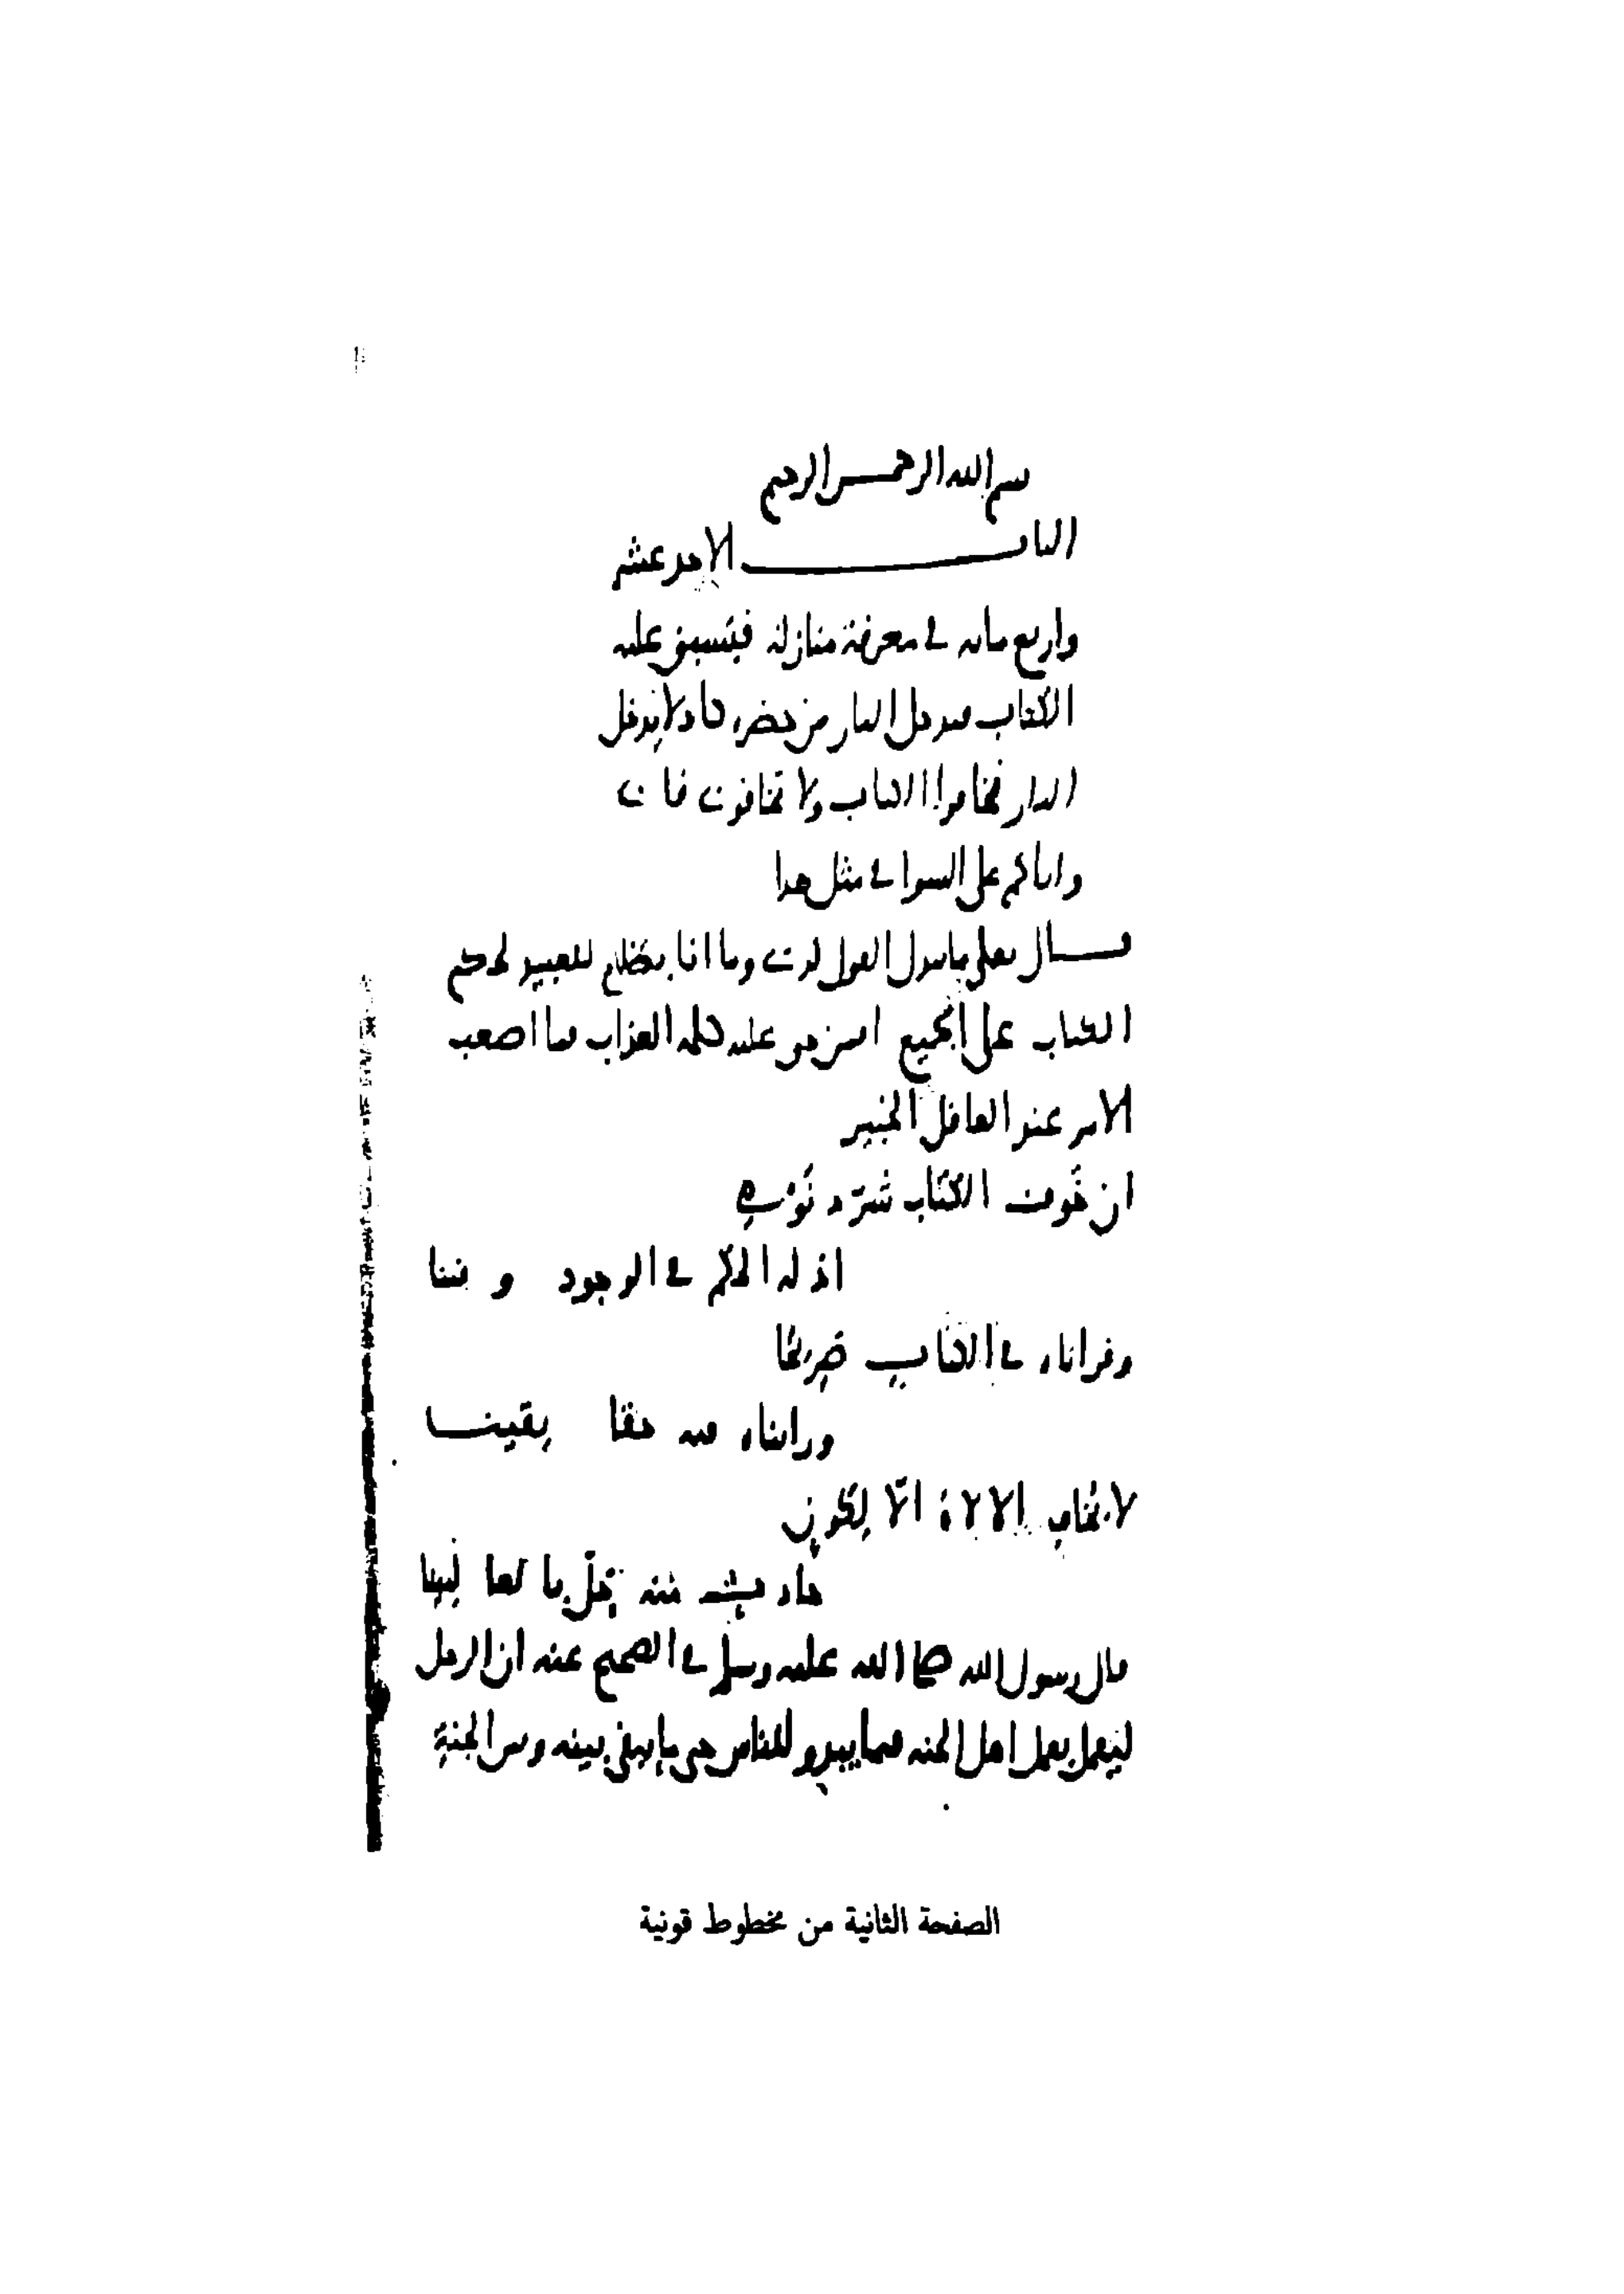 بسم الله الرحمن الرحيم
الباب الاحد عشر
واربع مائه في معرفة منازلة فيسبق عليه
الكتاب فيدخل النار من حضرة كاد لا يدخل
النار فخافوا الكتاب ولا تخافون فاني
واياكم على السوا في مثل هذا
قال تعلى ما يبدل القول لدي وما انا بظلام للعبيد لحكم
الكتاب على الجميع افمن حق عليه كلمة العذاب فما اصعب
الامر عند العاقل الخبير
ان خوف الكتاب شرد نومي
اذ له الحكم في الوجود وفينا
وقراناه في الكتاب صريحا
وراينا فيه حقا يقينا
لا نخاف الا لكوني
منه لقا
قال رسول الله صلى الله عليه وسلم في الصحيح عنه ان الرجل
ليعمل بعمل اهل الجنه فيما يبدو للناس حتى ما يبقى بينه وبين الجنة
الصفحة الثانية من مخطوط قونية